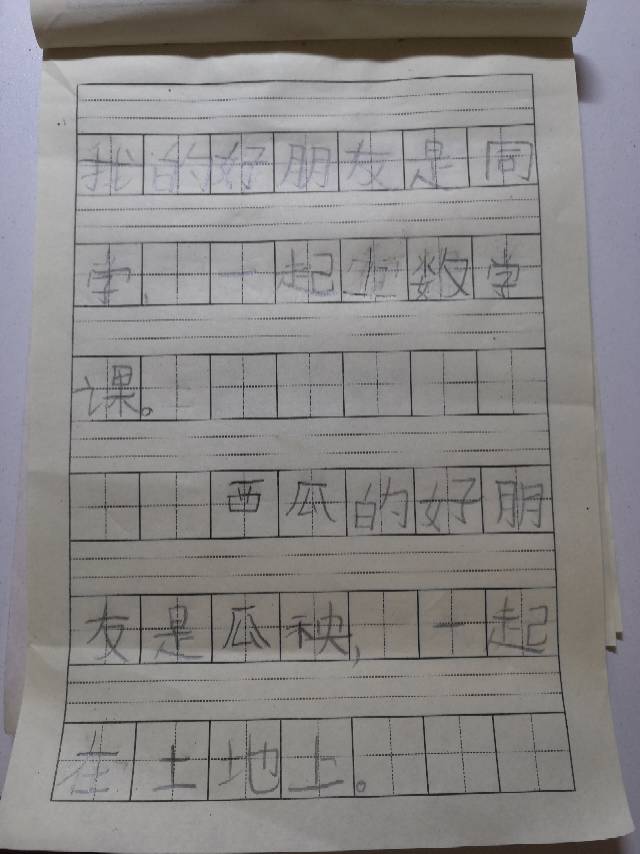 我的好朋友是同
学，一起上数学
课。
西瓜的好朋
友是瓜秧，一起
在土地上。